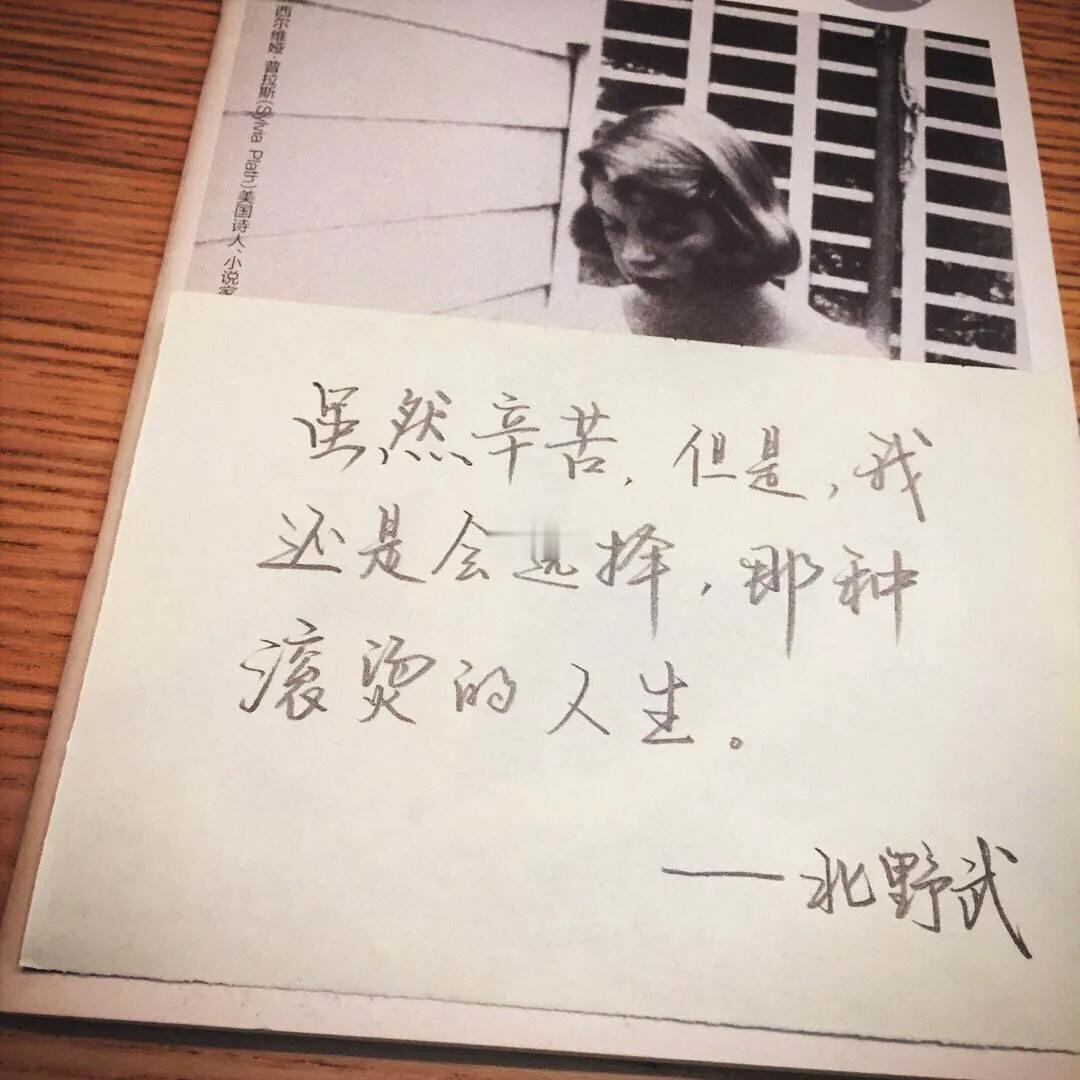 西尔维娅·普拉斯(Sylvia Plath)美国诗人、小说家
虽然辛苦，但是，我
还是会选择，那种
滚烫的人生。
——北野武